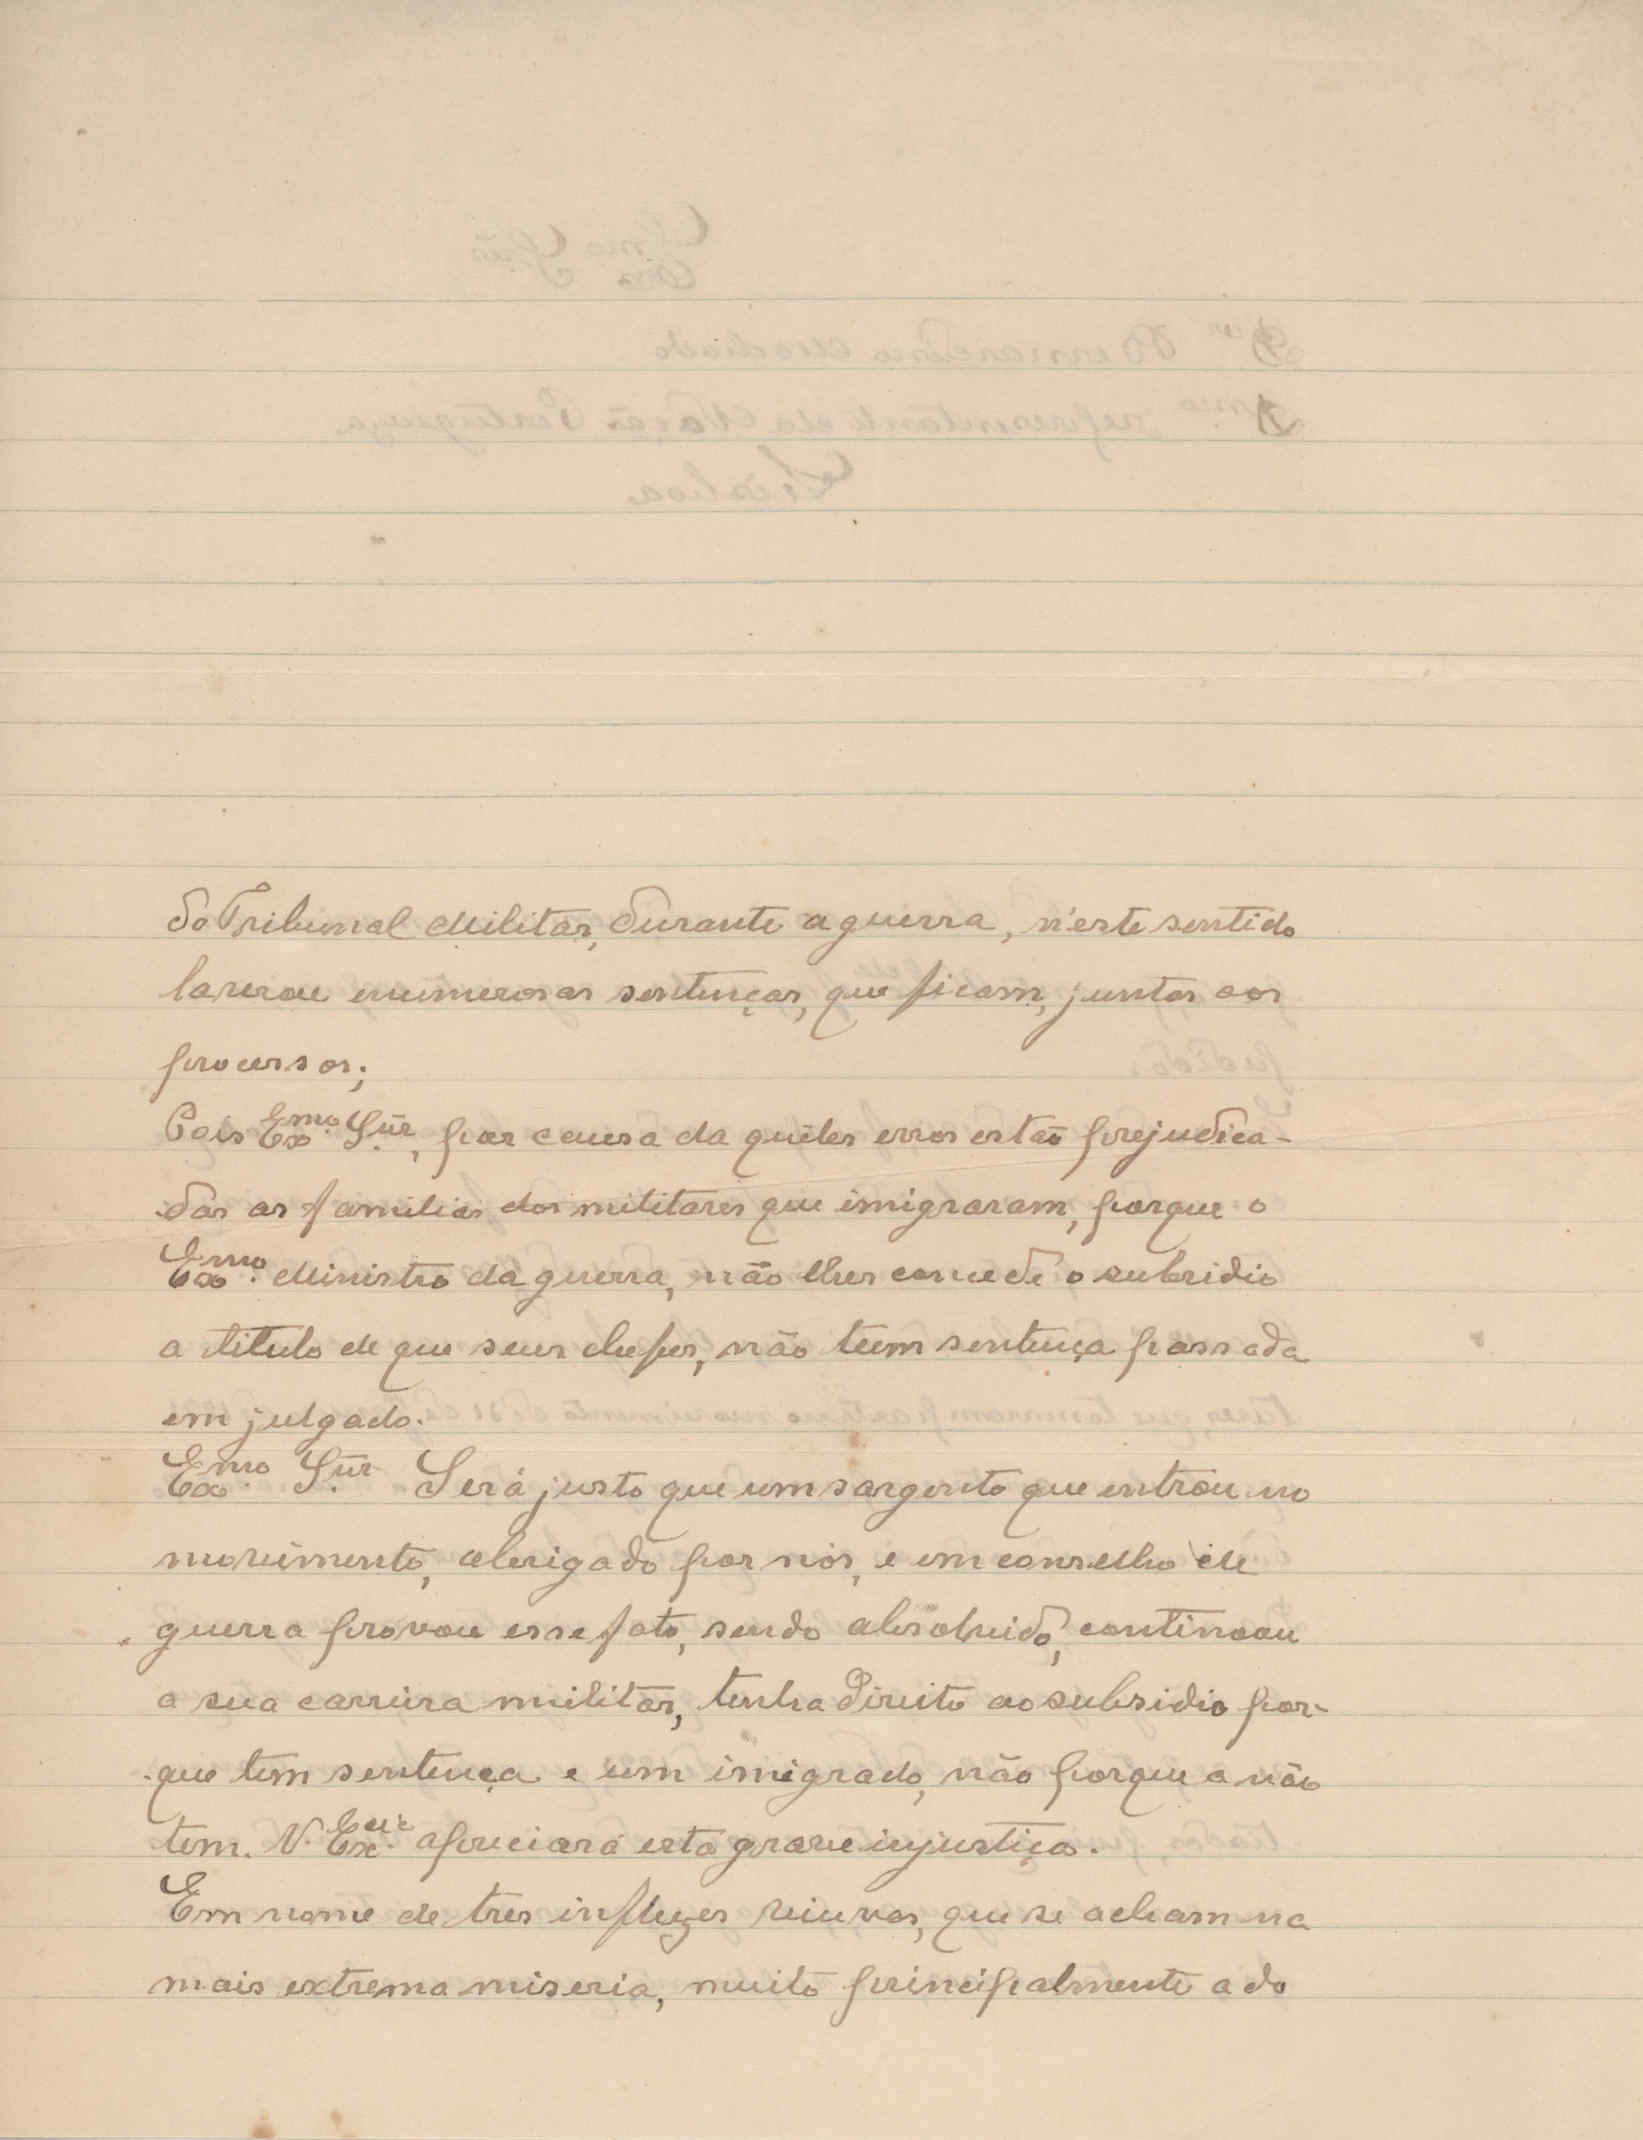 do Tribunal Militar, durante a guerra, n'este sentido
lavrou enumerosas sentenças, que ficam, juntas aos
processos;
Pois Exmo. Snr., por causa da quêles erros estão prejudica-
das as familias dos militares que imigraram, porque o
Exmo. Ministro da guerra, não lhes concede o subsidio
a titulo de que seus chefes, não teem sentença passada
em julgado.
Exmo. Snr. Será justo que um sargento que entrou no
movimento, obrigado por nós, e em conselho de
guerra provou esse fato, sendo absolvido, continoou
a sua carreira militar, tenha direito ao subsidio por-
que tem sentença e um imigrado, não porque a não
tem. V. Excia. apreciará esta grave injustiça.
Em nome de tres infelizes viuvas, que se acham na
mais extrema miseria, muito principalmente a do